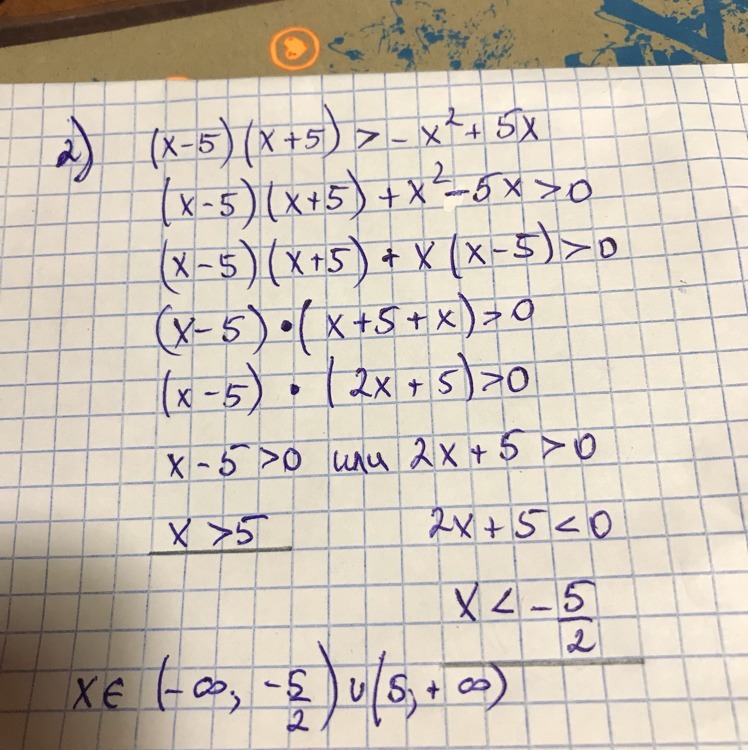 2) (x-5)(x+5) > -x²+5x
(x-5)(x+5)+x²-5x>0
(x-5)(x+5)+x(x-5)>0
(x-5)•(x+5+x)>0
(x-5)•(2x+5)>0
x-5>0 или 2x+5>0
x>5 2x+5<0
x<-5/2
x∈(-∞, -5/2)∪(5,+∞)